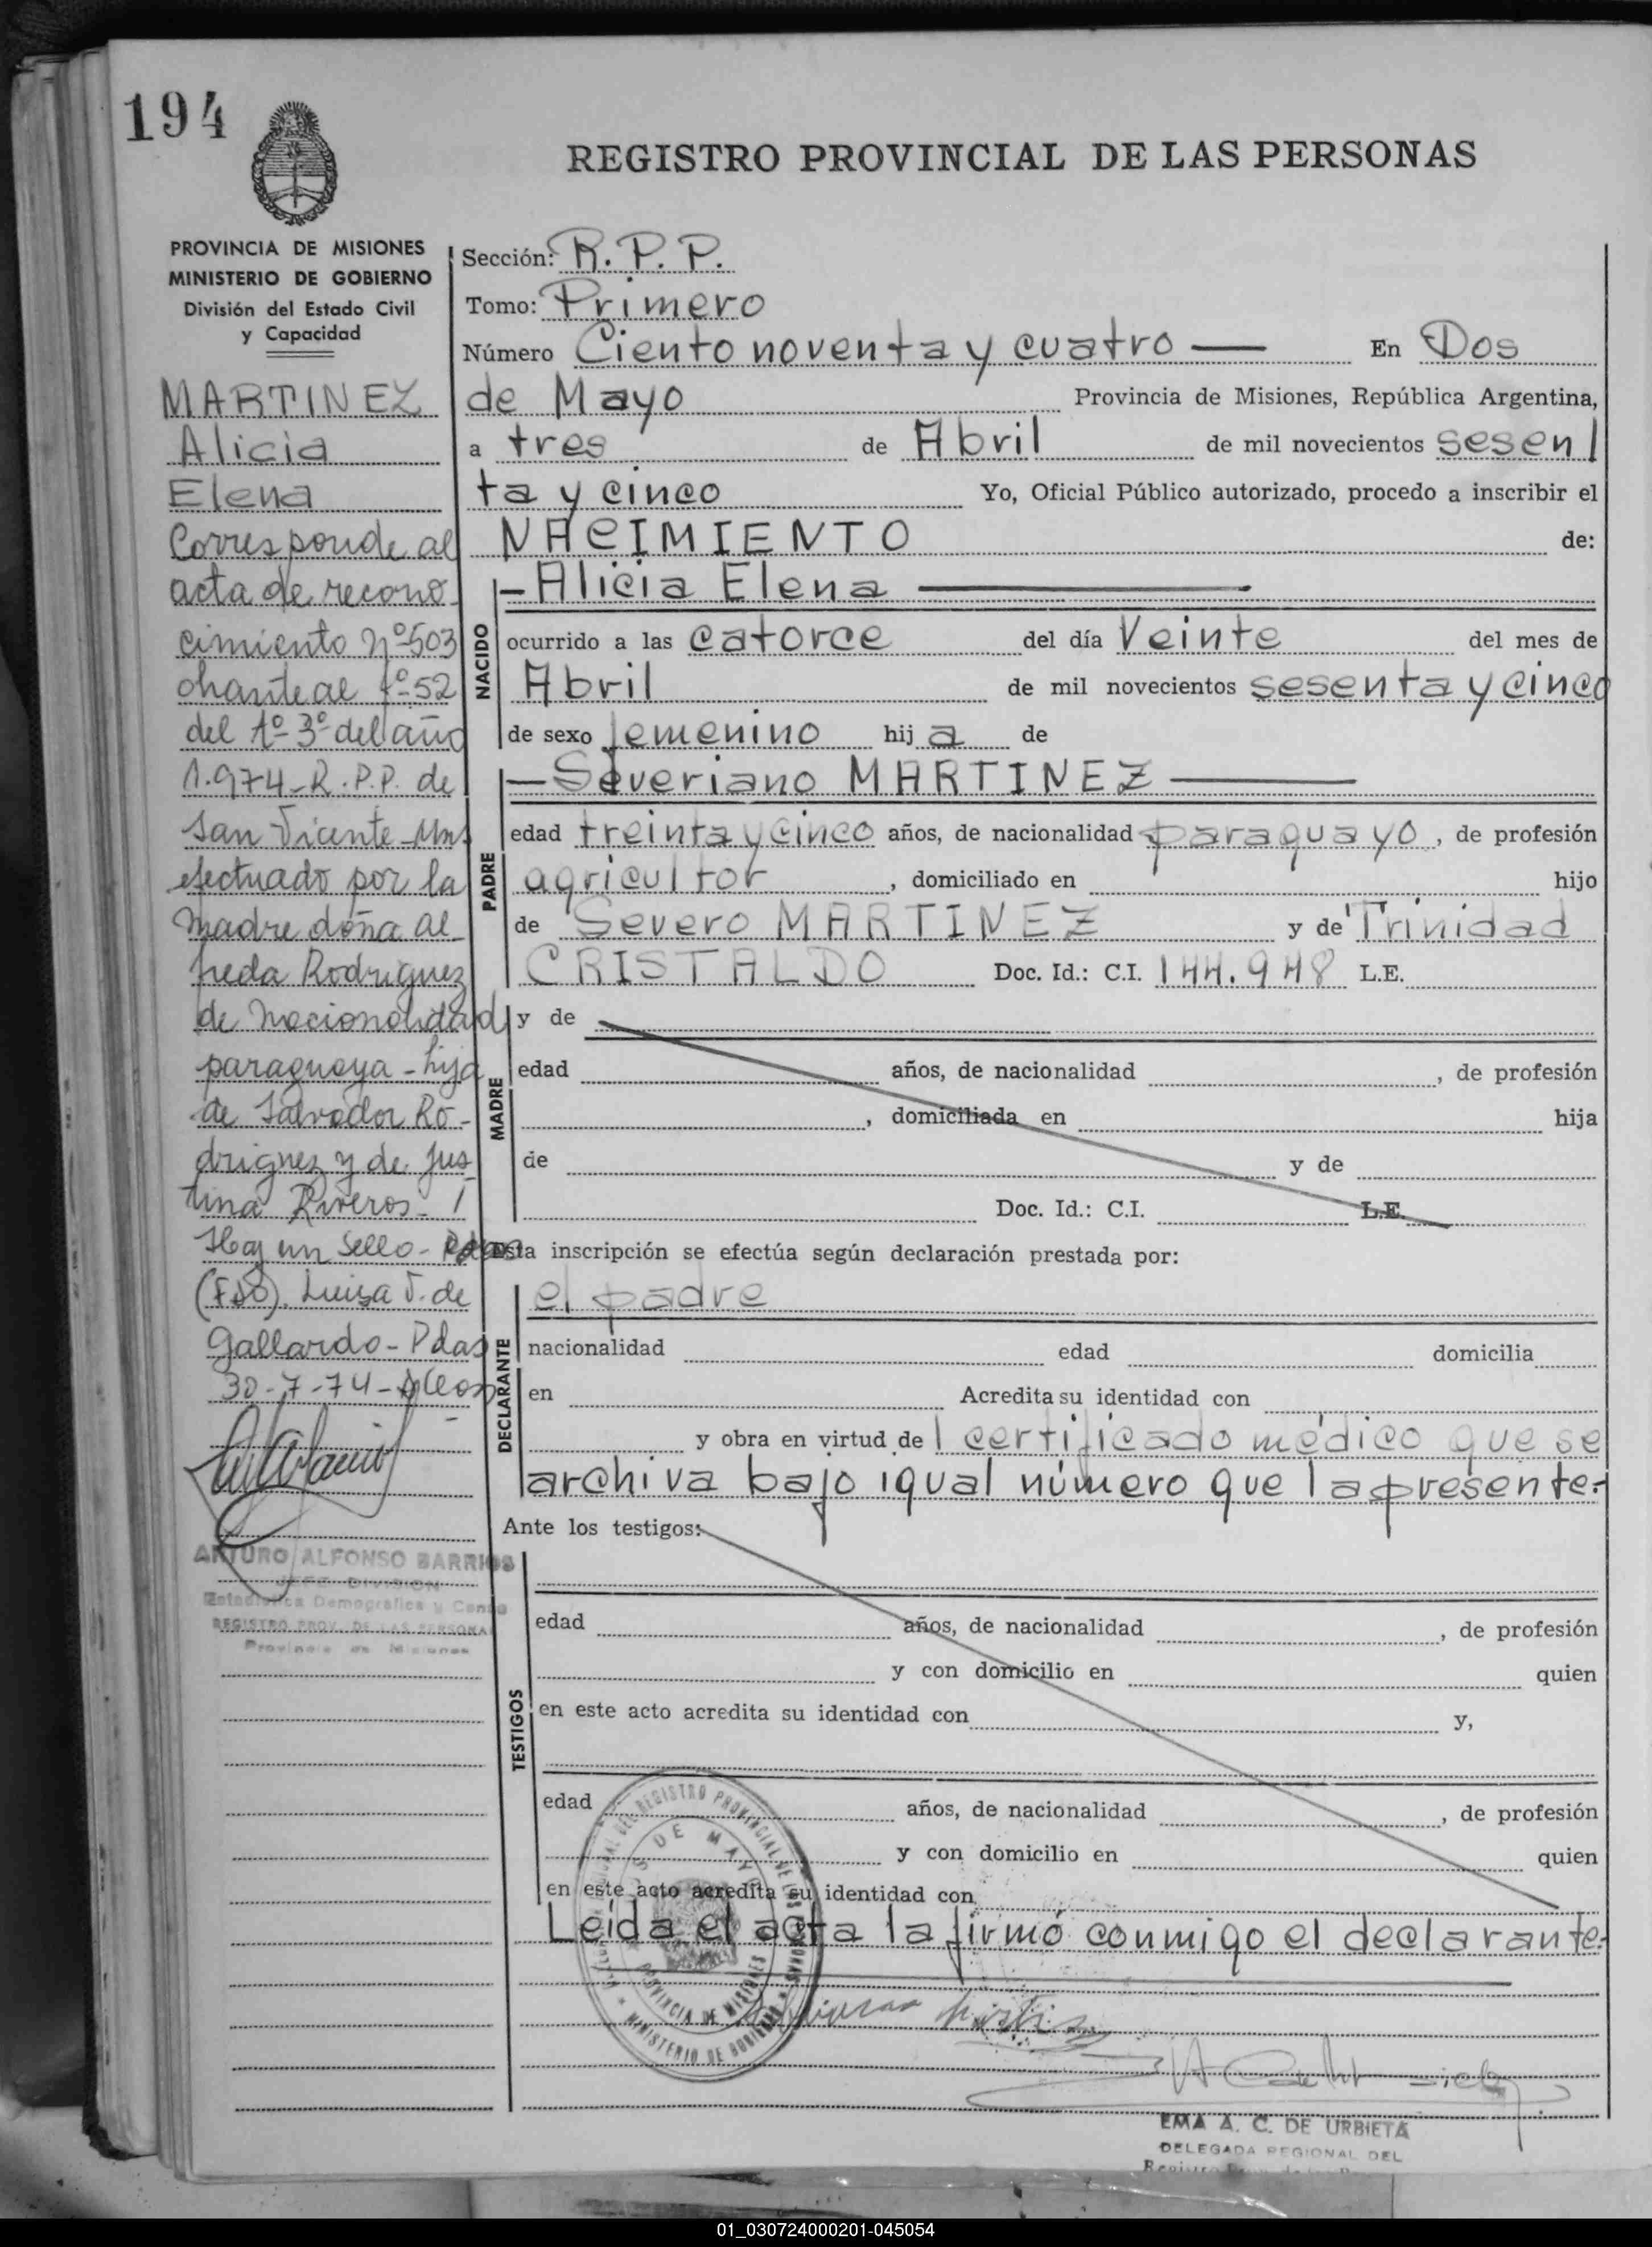 194
REGISTRO PROVINCIAL DE LAS PERSONAS
PROVINCIA DE MISIONES
MINISTERIO DE GOBIERNO
División del Estado Civil
y Capacidad
MARTINEZ
Alicia
Elena
Corresponde al
acta de recono
cimiento nº 503
obrante al fº 52
del tº 3º del año
1.974 - R.P.P. de
San Vicente - Mns
efectuado por la
madre doña Al
freda Rodriguez
de nacionalidad
paraguaya - hija
de Salvador Ro-
driguez y de Jus
tina Riveros -
Hay un Sello -
(FDO). Luisa V. de
Gallardo - Pdas
30-7-74 -
ARTURO ALFONSO BARRIOS
JEFE DIVISION
Estadistica Demografica y Censo
REGISTRO PROV. DE LAS PERSONAS
Provincia de Misiones
Sección: R.P.P.
Tomo: Primero
Número Ciento noventa y cuatro — En Dos
de Mayo Provincia de Misiones, República Argentina,
a tres de Abril de mil novecientos sesen
ta y cinco Yo, Oficial Público autorizado, procedo a inscribir el
NACIMIENTO de:
NACIDO
- Alicia Elena —
ocurrido a las catorce del día Veinte del mes de
Abril de mil novecientos sesenta y cinco
de sexo femenino hij a de
PADRE
- Severiano MARTINEZ —
edad treinta y cinco años, de nacionalidad paraguayo, de profesión
agricultor, domiciliado en hijo
de Severo MARTINEZ y de Trinidad
CRISTALDO Doc. Id.: C.I. 144.948 L.E.
MADRE
y de
edad años, de nacionalidad , de profesión
, domiciliada en hija
de y de
Doc. Id.: C.I. L.E.
Esta inscripción se efectúa según declaración prestada por:
DECLARANTE
el padre
nacionalidad edad domicilia
en Acredita su identidad con
y obra en virtud de l certificado médico que se
archiva bajo igual número que la presente.-
Ante los testigos:
TESTIGOS
edad años, de nacionalidad , de profesión
y con domicilio en quien
en este acto acredita su identidad con y,
edad años, de nacionalidad , de profesión
y con domicilio en quien
en este acto acredita su identidad con
Leída el acta la firmó conmigo el declarante.
REGISTRO PROVINCIAL DE LAS PERSONAS
DOS DE MAYO
PROVINCIA DE MISIONES
MINISTERIO DE GOBIERNO
EMA A. C. DE URBIETA
DELEGADA REGIONAL DEL
01_030724000201-045054